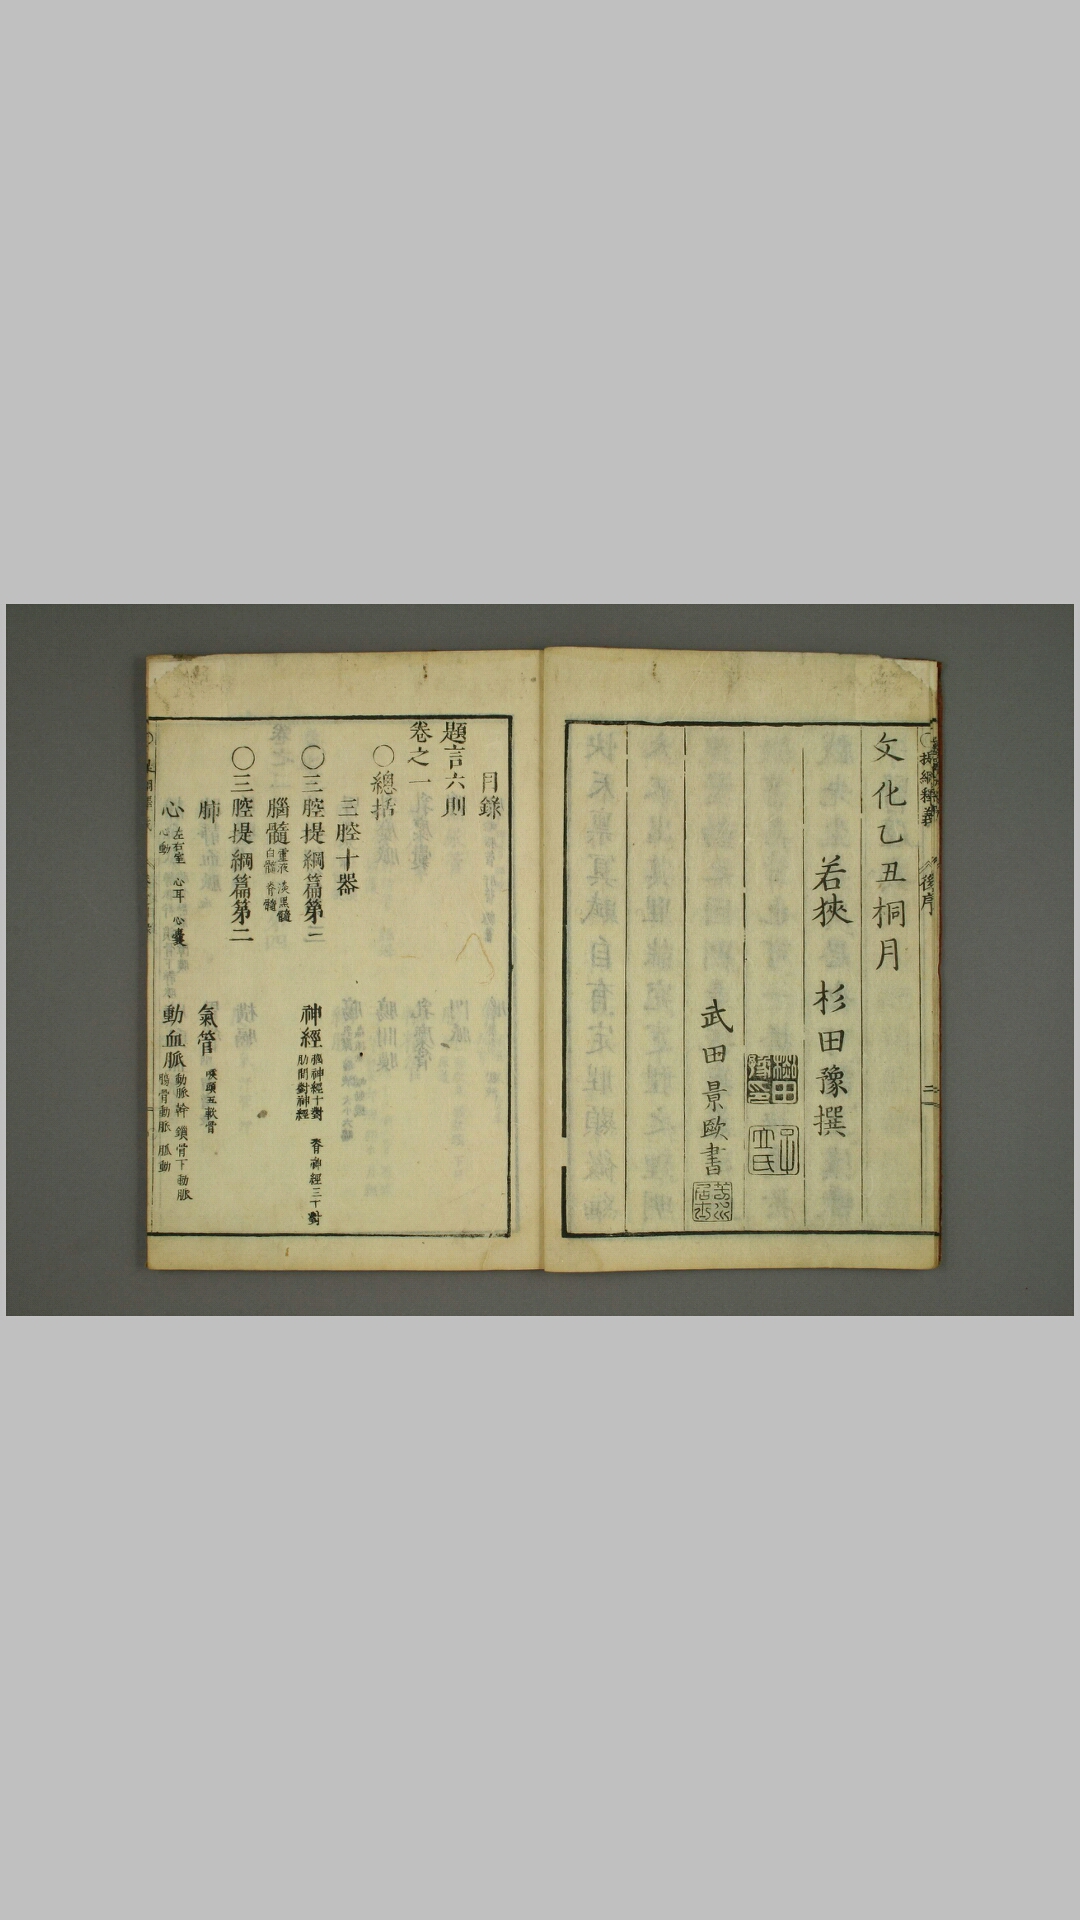 文化乙丑桐月
若狹 杉田豫撰
武田景歐書
後序
目錄
題言六則
卷之一
〇總括
三腔十器
〇三腔提綱篇第
腦髓 靈液 淡黑髓
白髓 脊髓
神經 腦神經十對 脊神經三十對
肋間對神經
〇三腔提綱篇第二
肺
氣管 喉頭五軟骨
心 左右室 心耳 心囊
心動
動血脈 動脈幹 鎖骨下動脈
腸骨動脈 脈動